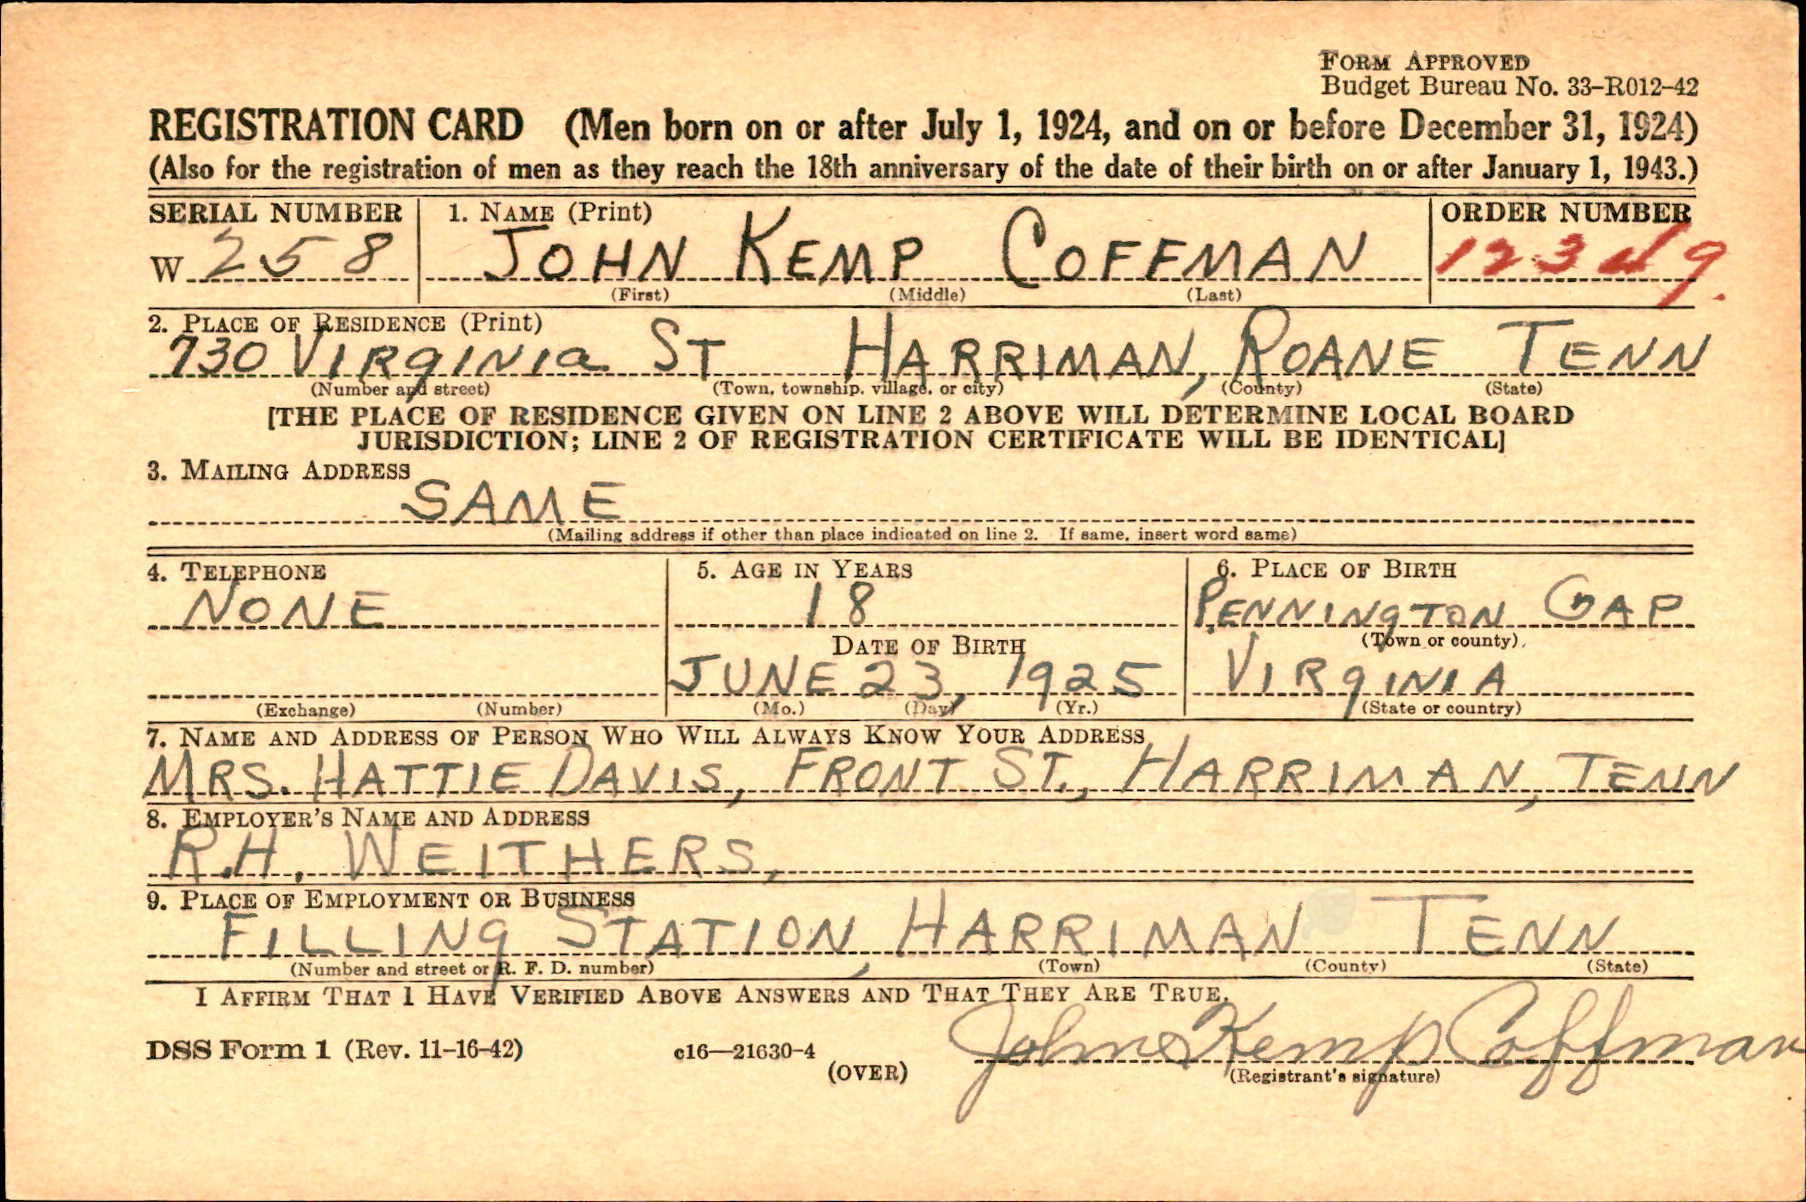 FORM APPROVED
Budget Bureau No. 33-R012-42
REGISTRATION CARD (Men born on or after July 1, 1924, and on or before December 31, 1924)
(Also for the registration of men as they reach the 18th anniversary of the date of their birth on or after January 1, 1943.)
SERIAL NUMBER 1. NAME (Print) ORDER NUMBER
W 258 JOHN KEMP COFFMAN 12349.
(First) (Middle) (Last)
2. PLACE OF RESIDENCE (Print)
730 VIRGINIA ST HARRIMAN, ROANE TENN
(Number and street) (Town, township, village, or city) (County) (State)
[THE PLACE OF RESIDENCE GIVEN ON LINE 2 ABOVE WILL DETERMINE LOCAL BOARD
JURISDICTION; LINE 2 OF REGISTRATION CERTIFICATE WILL BE IDENTICAL]
3. MAILING ADDRESS
SAME
(Mailing address if other than place indicated on line 2. If same, insert word same)
4. TELEPHONE 5. AGE IN YEARS 6. PLACE OF BIRTH
NONE 18 PENNINGTON GAP
DATE OF BIRTH (Town or county)
JUNE 23, 1925 VIRGINIA
(Exchange) (Number) (Mo.) (Day) (Yr.) (State or country)
7. NAME AND ADDRESS OF PERSON WHO WILL ALWAYS KNOW YOUR ADDRESS
MRS. HATTIE DAVIS, FRONT ST., HARRIMAN, TENN
8. EMPLOYER'S NAME AND ADDRESS
R.H. WEITHERS,
9. PLACE OF EMPLOYMENT OR BUSINESS
FILLING STATION, HARRIMAN TENN
(Number and street or R. F. D. number) (Town) (County) (State)
I AFFIRM THAT I HAVE VERIFIED ABOVE ANSWERS AND THAT THEY ARE TRUE.
John Kemp Coffman
DSS Form 1 (Rev. 11-16-42) c16—21630-4 (OVER) (Registrant's signature)